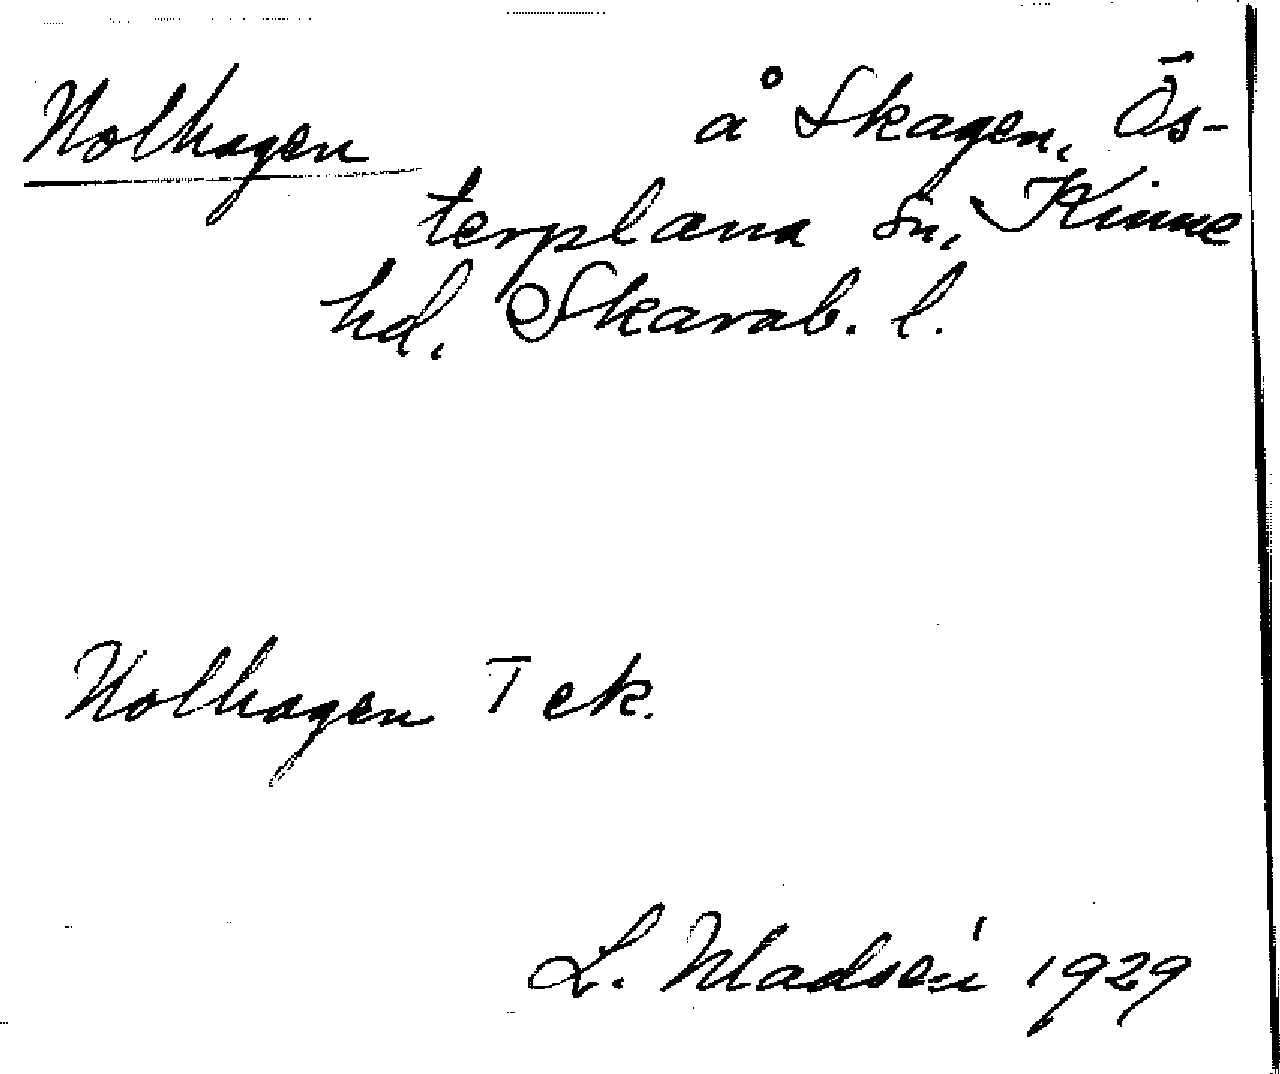 Nolhagen å Skagen, Ös-
terplana sn, Kinne
hd. Skarab. l.
Nolhagen T ek.
L. Madsén 1929